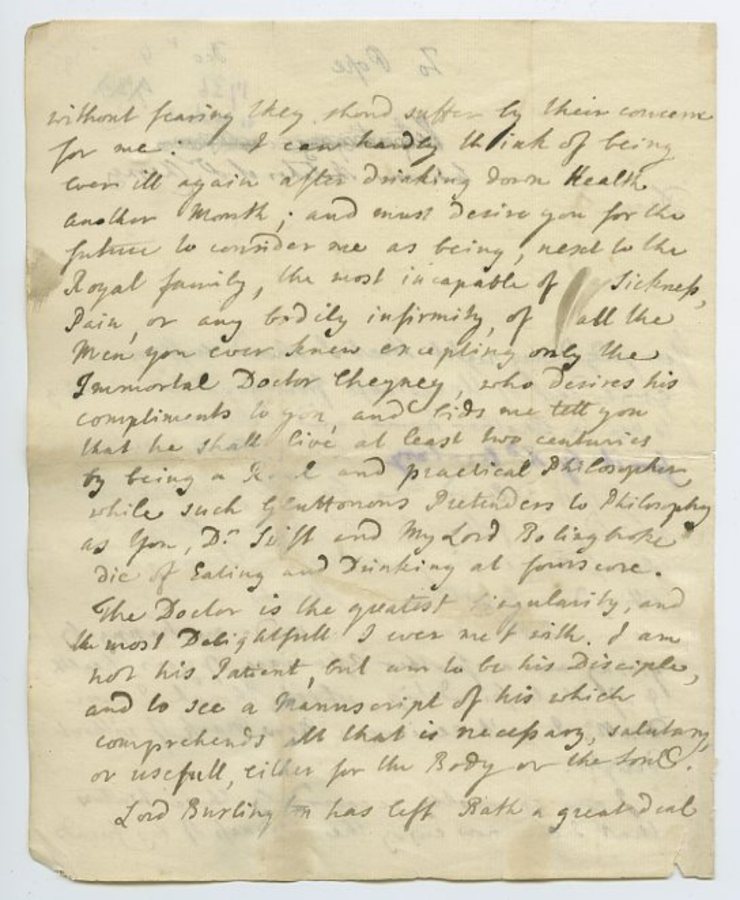 without fearing they shoud suffer by their concern
for me: I can hardly think of being
ever ill again after drinking down Health
another Month; and must desire you for the
future to consider me as being, next to the
Royal family, the most incapable of Sickness,
Pain, or any bodily infirmity, of all the
Men you ever knew excepting only the
Immortal Doctor Cheyney, who desires his
compliments to you, and bids me tell you
that he shall live at least two centuries
by being a Real and practical Philosopher
while such Gluttonous Pretenders to Philosophy
as You, Dr. Swift and My Lord Bolingbroke
die of Eating and Drinking at fourscore.
The Doctor is the greatest singularity, and
the most Delightfull I ever met with. I am
not his Patient, but am to be his Disciple,
and to see a Manuscript of his which
comprehends all that is necessary, salutary,
or usefull, either for the Body or the Soul.
Lord Burlington has left Bath a great deal